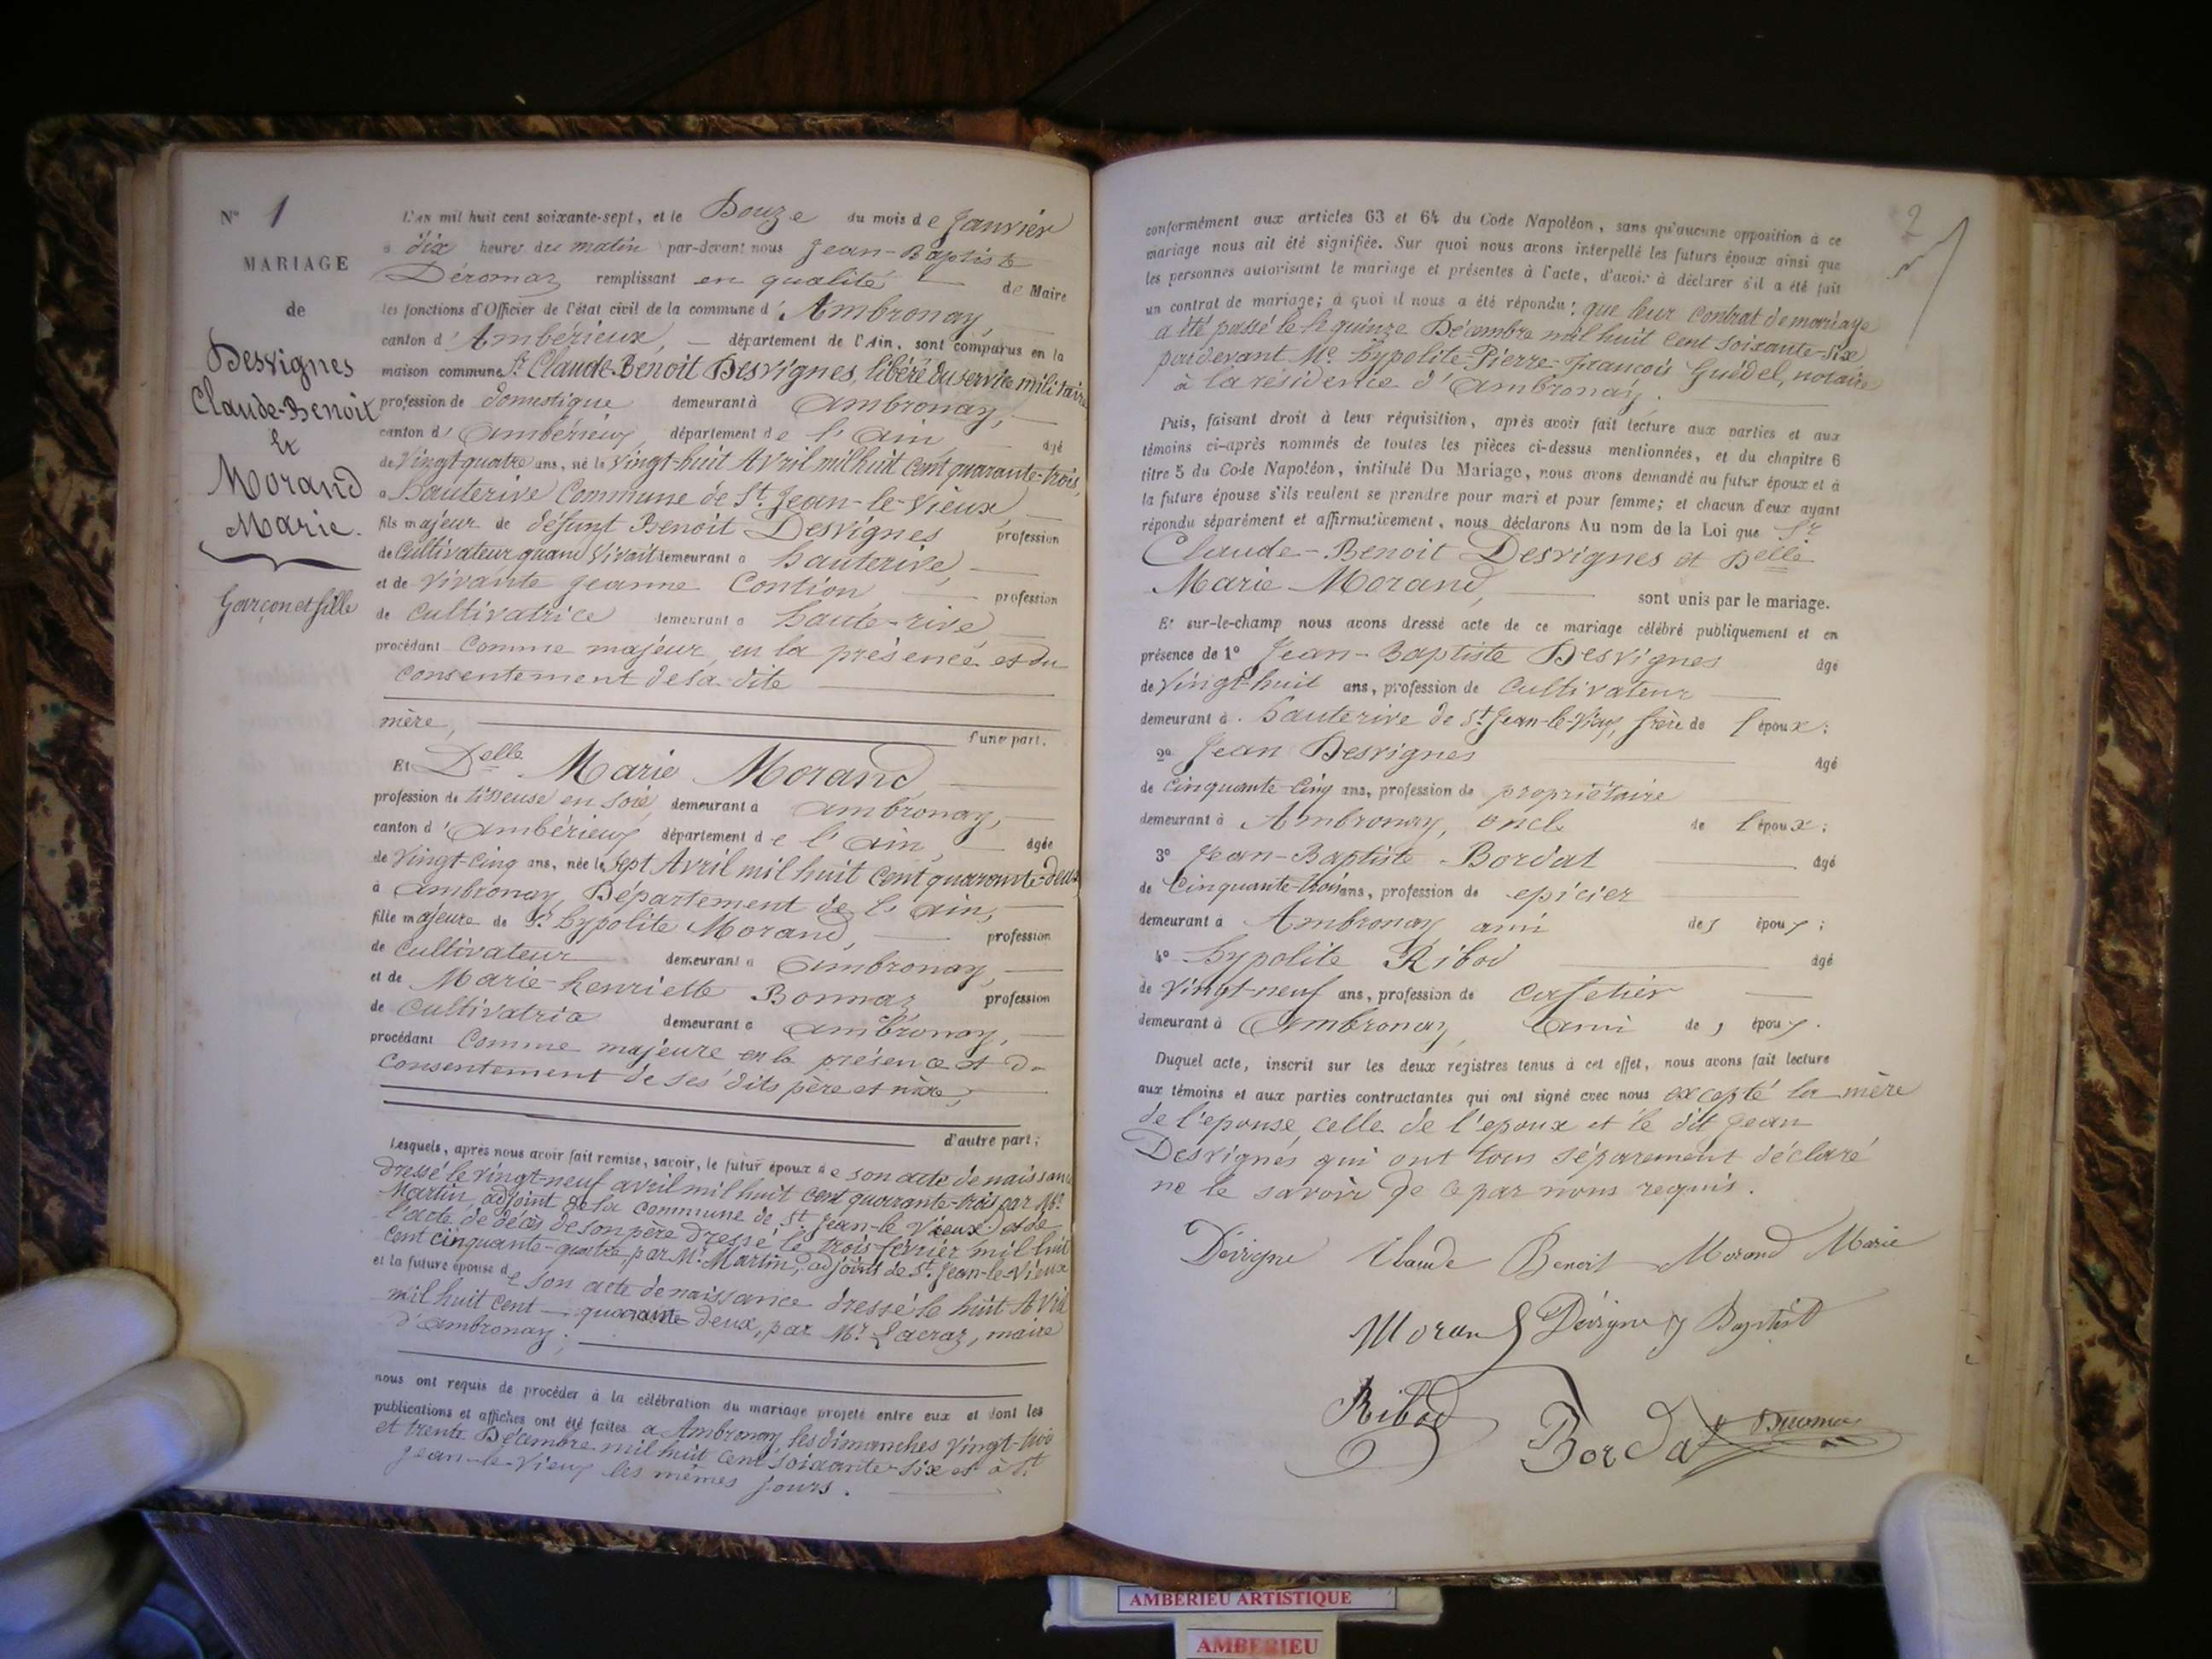 N° 1
MARIAGE
de
Desvignes
Claude-Benoit
et
Morand
Marie.
Garçon et fille
L'AN mil huit cent soixante-sept, et le Douze du mois de Janvier
à dix heures du matin par-devant nous Jean-Baptiste
Déromaz remplissant en qualité de Maire
les fonctions d'Officier de l'état civil de la commune d'Ambronay,
canton d'Ambérieux, département de l'Ain, sont comparus en la
maison commune Sr Claude-Benoit Desvignes, libéré du service militaire
profession de domestique demeurant à Ambronay,
canton d'Ambérieux, département de l'Ain âgé
de Vingt-quatre ans, né le Vingt-huit Avril mil huit cent quarante-trois,
à hauterive Commune de St Jean-le-Vieux,
fils majeur de défunt Benoit Desvignes profession
de Cultivateur quand vivait demeurant à hauterive,
et de vivante Jeanne Contion profession
de Cultivatrice demeurant à haute-rive
procédant Comme majeur, en la présence et du
Consentement de sa dite
mère, d'une part.
Et Delle Marie Morand,
profession de tisseuse en soie, demeurant à Ambronay,
canton d'Ambérieux, département de l'Ain, âgée
de Vingt-cinq ans, née le Sept Avril mil huit Cent quarante-deux,
à Ambronay, Département de l'Ain,
fille majeure de Sr hypolite Morand, profession
de Cultivateur demeurant à Ambronay,
et de Marie-henriette Bonnaz profession
de Cultivatrice demeurant à Ambronay,
procédant Comme majeure en la présence et du
Consentement de ses dits père et mère,
d'autre part;
Lesquels, après nous avoir fait remise, savoir, le futur époux de son acte de naissance
dressé le vingt-neuf avril mil huit cent quarante-trois par Mr
Martin, adjoint de la commune de St Jean-le Vieux et de
l'acte de décès de son père dressé le trois février mil huit
cent cinquante-quatre, par Mr Martin, adjoint de St Jean-le-Vieux
et la future épouse de son acte de naissance dressé le huit Avril
mil huit cent quarante-deux, par Mr Lacraz, maire
d'Ambronay;
nous ont requis de procéder à la célébration du mariage projeté entre eux et dont les
publications et affiches ont été faites à Ambronay, les dimanches vingt-trois
et trente Décembre mil huit cent soixante-six et à St
Jean-le-Vieux les mêmes jours.
2
conformément aux articles 63 et 64 du Code Napoléon, sans qu'aucune opposition à ce
mariage nous ait été signifiée. Sur quoi nous avons interpellé les futurs époux ainsi que
les personnes autorisant le mariage et présentes à l'acte, d'avoir à déclarer s'il a été fait
un contrat de mariage; à quoi il nous a été répondu: que leur Contrat de mariage
a été passé le le quinze Décembre mil huit cent soixante-six
par devant Me hypolite-Pierre-François Guédel, notaire
à la résidence d'Ambronay.
Puis, faisant droit à leur réquisition, après avoir fait lecture aux parties et aux
témoins ci-après nommés de toutes les pièces ci-dessus mentionnées, et du chapitre 6
titre 5 du Code Napoléon, intitulé Du Mariage, nous avons demandé au futur époux et à
la future épouse s'ils veulent se prendre pour mari et pour femme; et chacun d'eux ayant
répondu séparément et affirmativement, nous déclarons Au nom de la Loi que Sr
Claude-Benoit Desvignes et Delle
Marie Morand, sont unis par le mariage.
Et sur-le-champ nous avons dressé acte de ce mariage célébré publiquement et en
présence de 1° Jean-Baptiste Desvignes âgé
de Vingt-huit ans, profession de Cultivateur
demeurant à hauterive de St Jean-le-Vieux, frère de l'époux;
2° Jean Desvignes âgé
de Cinquante-cinq ans, profession de propriétaire
demeurant à Ambronay, oncle de l'époux;
3° Jean-Baptiste Bordat âgé
de Cinquante-trois ans, profession de epicier
demeurant à Ambronay ami des époux;
4° hypolite Ribod âgé
de Vingt-neuf ans, profession de Cafetier
demeurant à Ambronay, ami des époux.
Duquel acte, inscrit sur les deux registres tenus à cet effet, nous avons fait lecture
aux témoins et aux parties contractantes qui ont signé avec nous excepté la mère
de l'epouse, celle de l'epoux et le dit Jean
Desvignes qui ont tous séparement déclaré
ne le savoir de ce par nous requis.
Dévigne Claude Benoit Morand Marie
Morand Dévigne Baptist
Ribod Bordat
AMBERIEU ARTISTIQUE
AMBERIEU